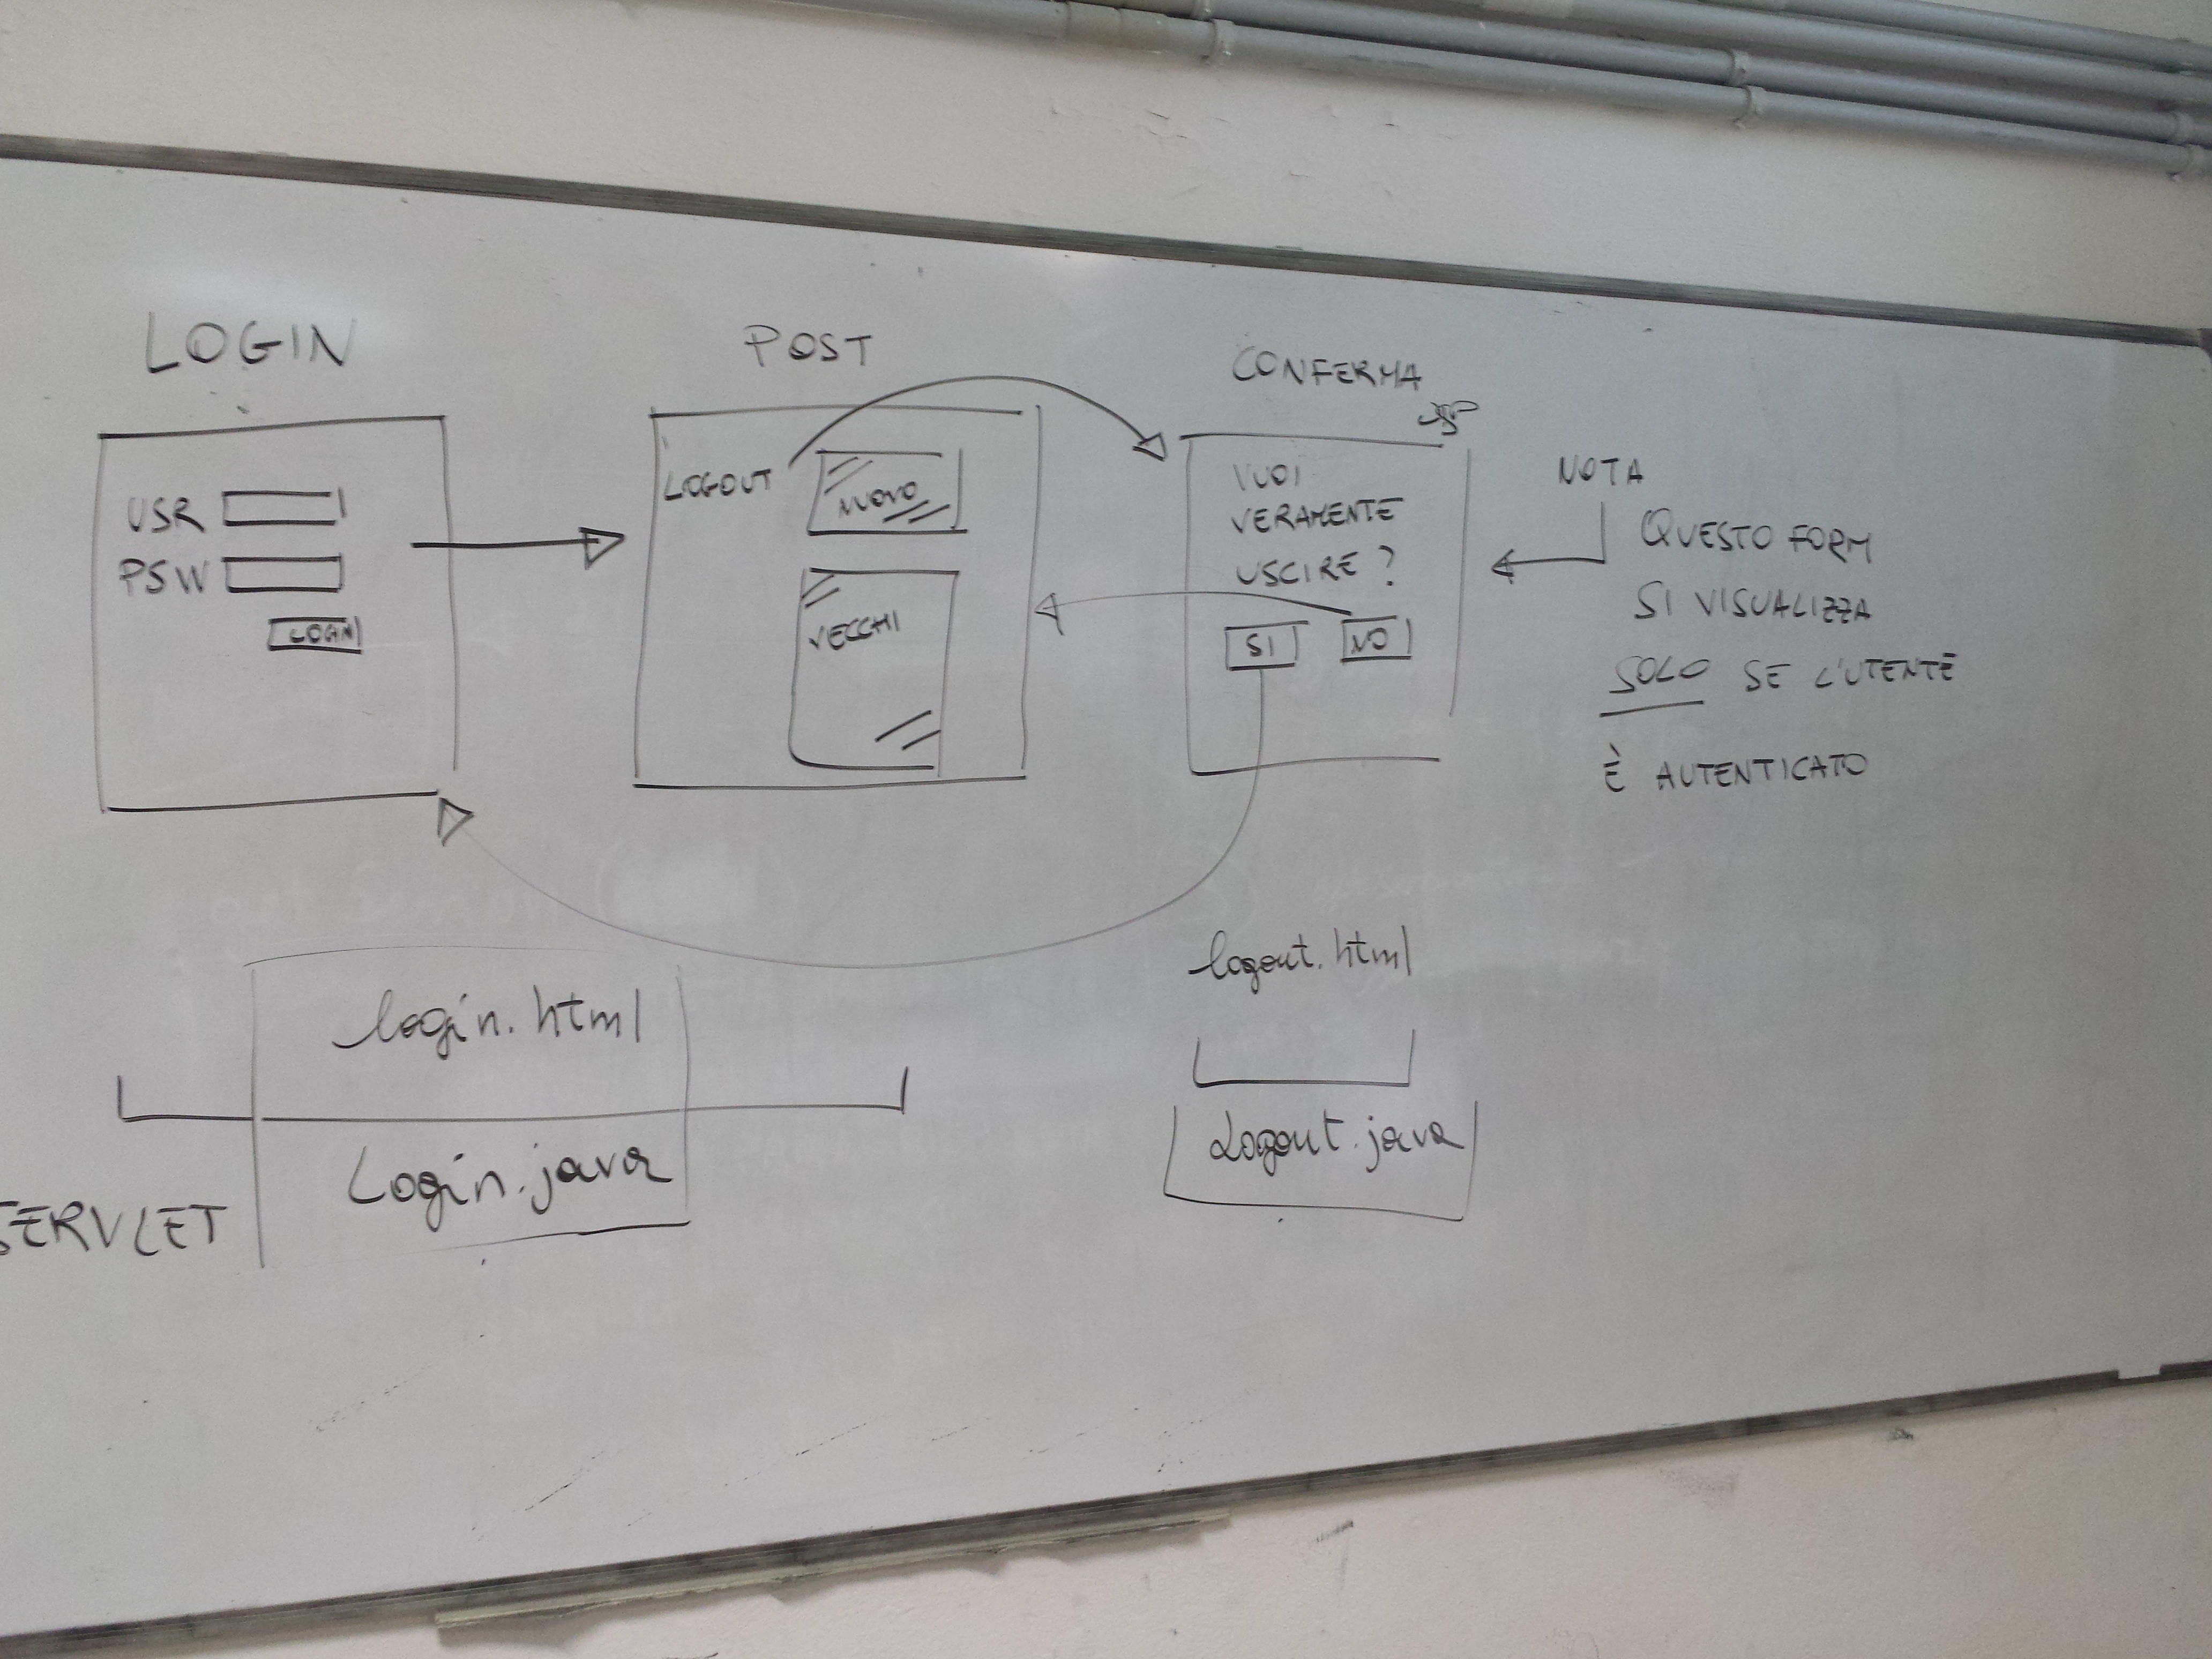 LOGIN
USR
PSW
LOGIN
POST
LOGOUT
NUOVO
VECCHI
CONFERMA
VUOI
VERAMENTE
USCIRE?
SI NO
NOTA
QUESTO FORM
SI VISUALIZZA
SOLO SE L'UTENTE
È AUTENTICATO
login.html
Login.java
SERVLET
logout.html
Logout.java